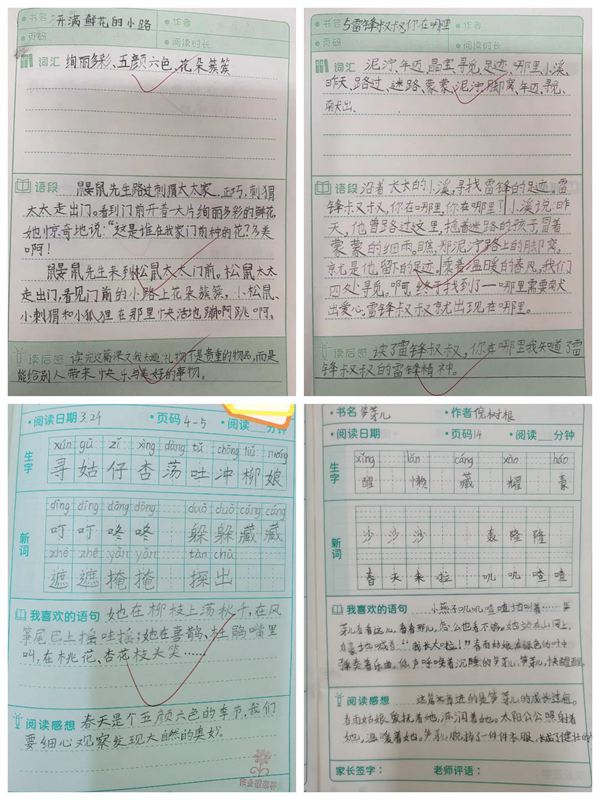 ·书名 开满鲜花的小路 ·作者
·页码 ·阅读时长
词汇 绚丽多彩、五颜六色、花朵簇簇
语段 鼹鼠先生路过刺猬太太家,正巧,刺猬
太太走出门。看到门前开着一大片绚丽多彩的鲜花,
她惊奇地说:“这是谁在我家门前种的花?多美
啊!
鼹鼠先生来到松鼠太太门前。松鼠太太
走出门,看见门前的小路上花朵簇簇,小松鼠、
小刺猬和小狐狸在那里快活地蹦啊跳啊。
读后感 读完这篇课文我知道礼物不是贵重的物品,而是
能给别人带来快乐与美好的事物。
·书名 雷锋叔叔你在哪里 ·作者
·页码 ·阅读时长
词汇 泥泞、年迈、晶莹、寻觅、足迹、哪里、小溪、
昨天、路过、迷路、蒙蒙、泥泞、脚窝、年迈、寻觅、
献出、
语段 沿着长长的小溪,寻找雷锋的足迹。雷
锋叔叔,你在哪里,你在哪里?小溪说:昨
天,他曾路过这里,抱着迷路的孩子,冒着
蒙蒙的细雨。瞧,那泥泞路上的脚窝,
就是他留下的足迹。乘着温暖的春风,我们
四处寻觅。啊,终于找到了——哪里需要献
出爱心,雷锋叔叔就出现在哪里。
读后感 读了雷锋叔叔,你在哪里我知道了雷
锋叔叔的雷锋精神。
·阅读日期 3.24 ·页码 4-5 ·阅读 分钟
生字
xún gū zǐ xìng dàng tǔ chōng liǔ niáng
寻 姑 仔 杏 荡 吐 冲 柳 娘
新词
dīng dīng dōng dōng duǒ duǒ cáng cáng
叮 叮 咚 咚 躲 躲 藏 藏
zhē zhē yǎn yǎn tàn chū
遮 遮 掩 掩 探 出
我喜欢的语句 她在柳枝上荡秋千,在风
筝尾巴上摇哇摇;她在喜鹊、杜鹃嘴里
叫,在桃花、杏花枝头笑……
阅读感想 春天是个五颜六色的季节,我们
要细心观察发现大自然的奥妙。
·书名 笋芽儿 ·作者 倪树根
·阅读日期 ·页码 14 ·阅读 分钟
生字
xǐng lǎn cáng háo
醒 懒 藏 耀 豪
新词
沙 沙 沙 轰 隆 隆
春 天 来 啦 叽 叽 喳 喳
我喜欢的语句 小燕子叽叽喳喳地叫着……
笋芽儿看看这儿,看看那儿,怎么也看不够。她站在山冈上,
自豪地喊着:“我长大啦!”
弹奏着乐曲。低声呼唤着沉睡的笋芽儿,笋芽儿,快醒醒
阅读感想 这篇课文讲的是笋芽儿的成长过程。
春雨姑娘爱抚着她,滋润着她。太阳公公照射着
她,温暖着她。笋芽儿脱掉了一件件衣服,长成了健壮的
家长签字: 老师评语: